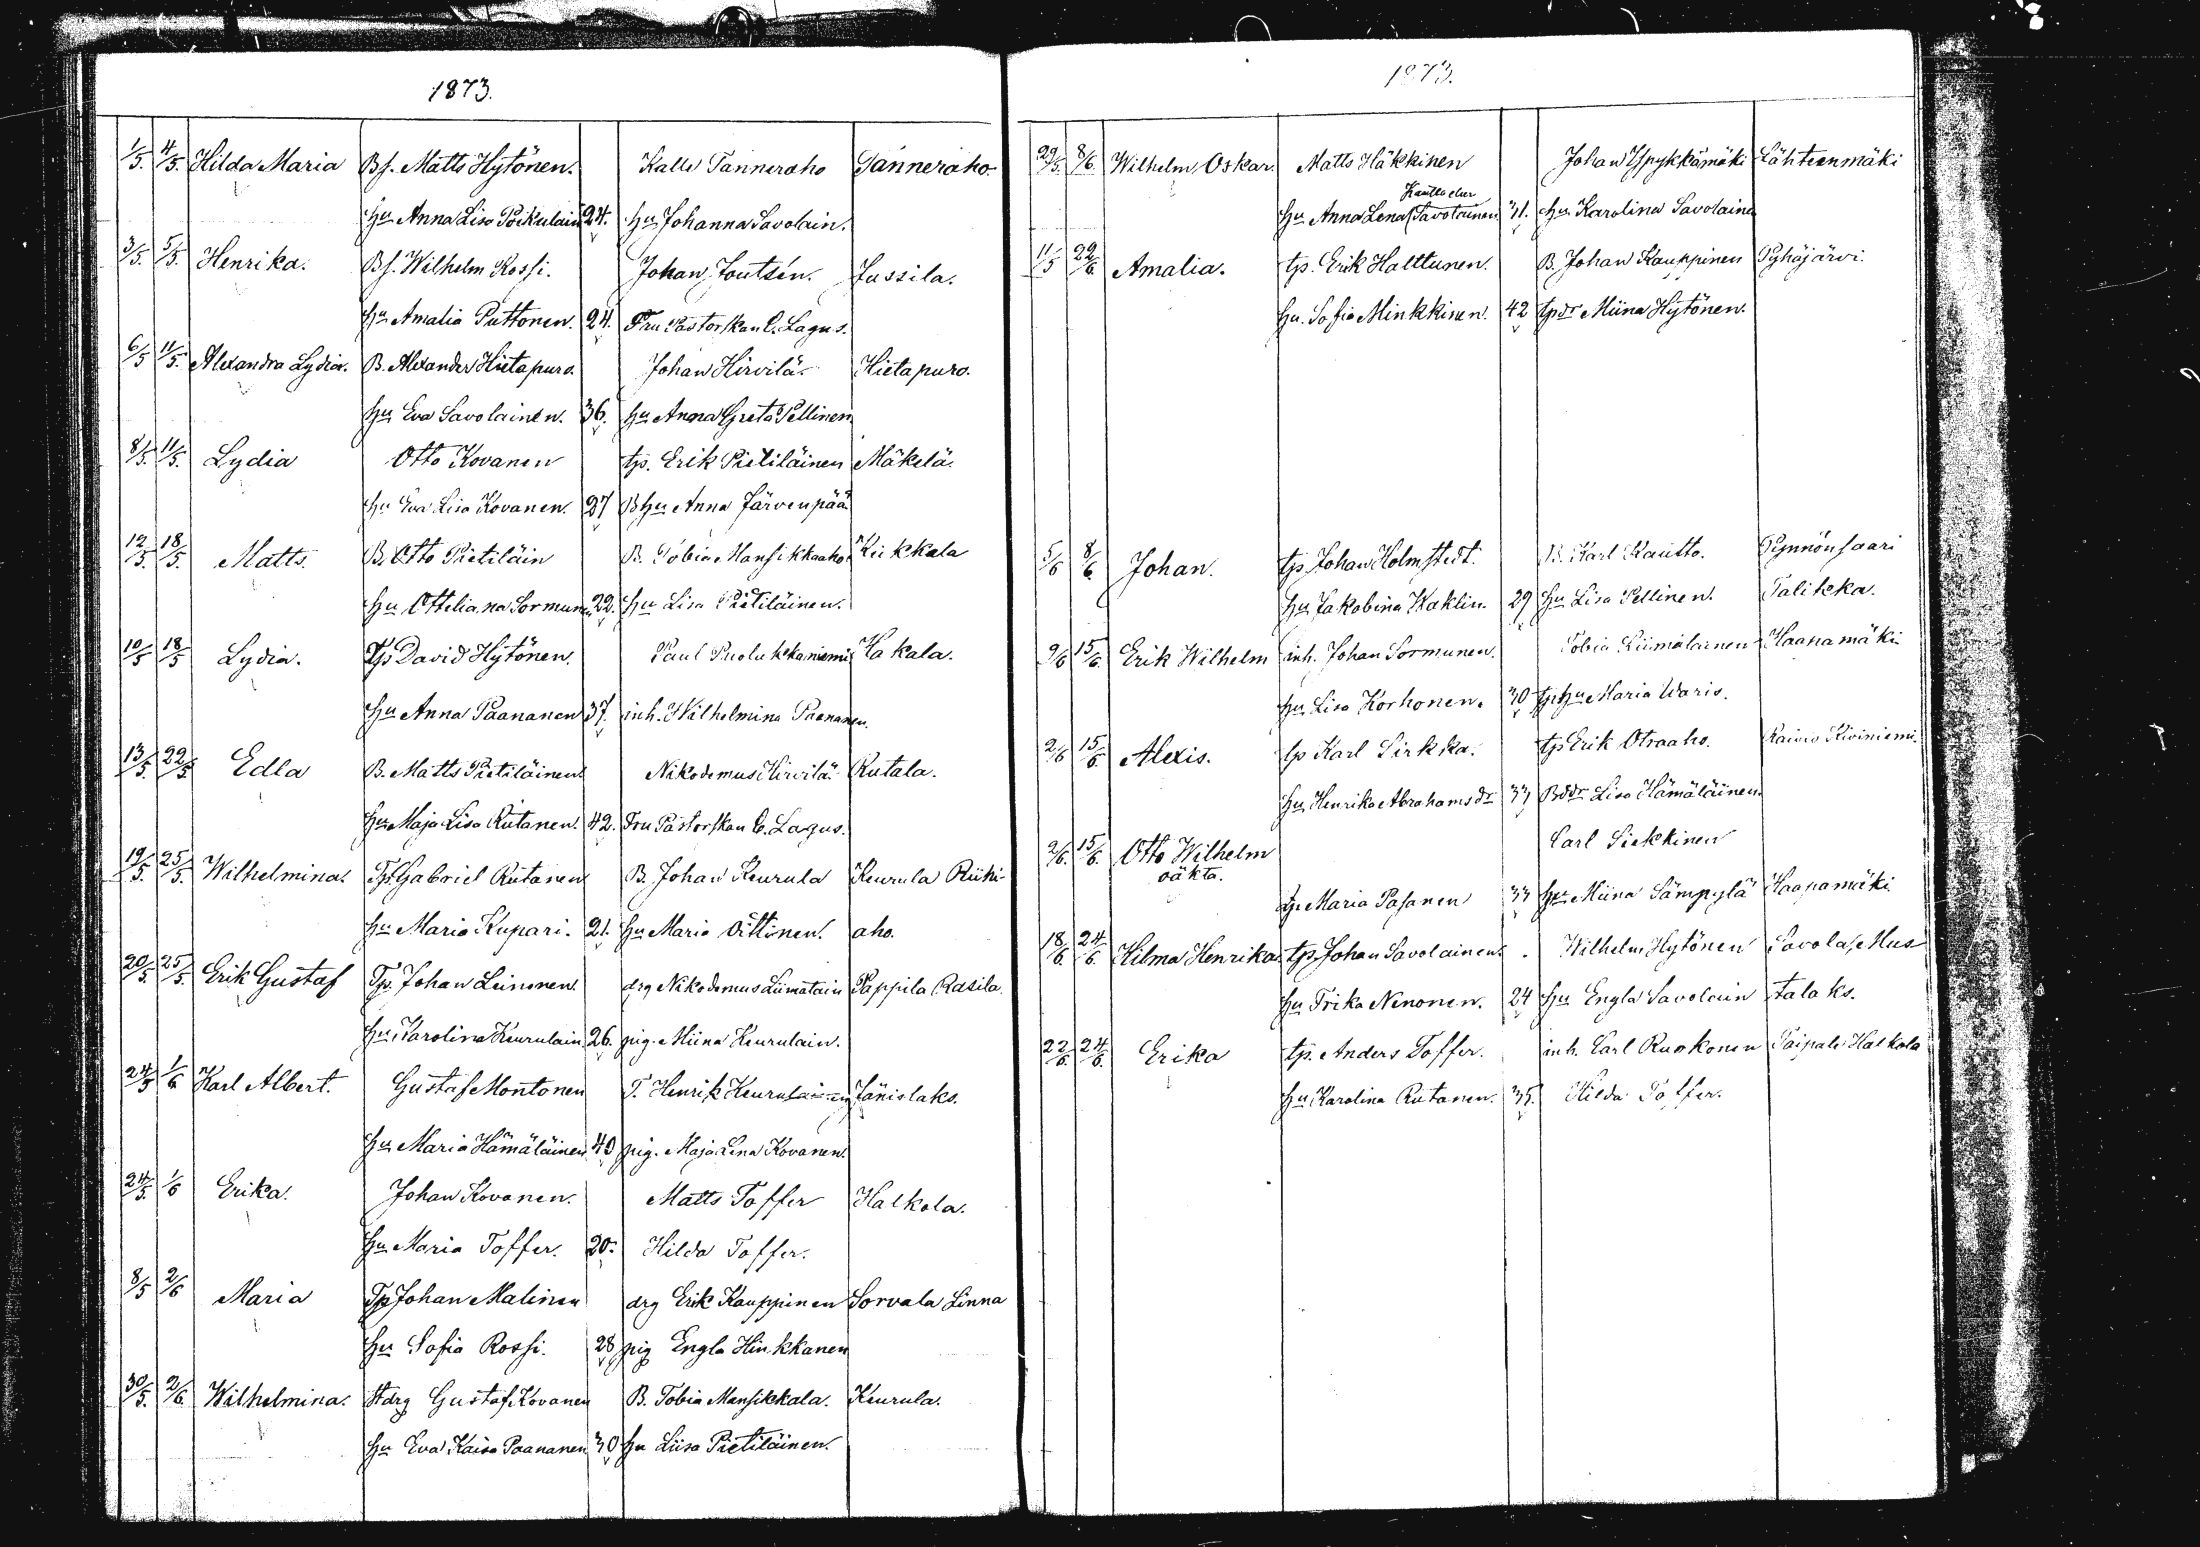 1873.
1/5. 4/5. Hilda Maria Bf. Matts Hytönen. Kalle Tanneraho Tanneraho
hu Anna Lisa Poikulain 24. hu Johanna Savolain.
3/5. 5/5. Henrika. Bf. Wilhelm Rossi. Johan Joutsén. Jussila.
hu Amalia Puttonen. 24. Fru Pastorskan C. Lagus.
6/5 11/5. Alexandra Lydia. B. Alexander Hietapuro. Johan Hirvilä. Hietapuro.
hu Eva Savolainen. 36. hu Anna Greta Pellinen
8/5. 11/5. Lydia Otto Kovanen tp. Erik Pietiläinen Mäkelä.
hu Eva Lisa Kovanen. 27 B hu Anna Järvenpää
12/5. 18/5. Matts. B. Otto Pietiläin B. Tobias Mansikkaaho Kukkala
hu Ottiliana Sormunen 22. hu Lisa Pietiläinen.
10/5 18/5 Lydia. Tp David Hytönen. Paul Puolukkaniemi Hakala.
hu Anna Paananen 37. inh. Wilhelmina Paananen.
13/5. 22/5 Edla B. Matts Pietiläinen Nikodemus Hirvilä Rutala.
hu Maja Lisa Rutanen. 42. Fru Pastorskan C. Lagus.
19/5. 25/5. Wilhelmina. Tp Gabriel Rutanen B. Johan Keurula Keurula Riihi-
hu Maria Kupari. 21. hu Maria Oittinen. aho.
20/5. 25/5. Erik Gustaf Tp. Johan Leinonen. drg Nikodemus Liimatain Pappila Rasila.
hu Karolina Keurulain 26. pig. Miina Keurulain.
24/5 1/6 Karl Albert. Gustaf Montonen T. Henrik Keurulainen Jänislaks.
hu Maria Hämäläinen 40 pig. Maja Lena Kovanen.
24/5. 1/6 Erika. Johan Kovanen. Matts Toffer Halkola.
hu Maria Toffer. 20. Hilda Toffer.
8/5 2/6 Maria Tp Johan Malinen drg Erik Kauppinen Sorvala Linna
hu Sofia Rossi. 28 pig Engla Hinkkanen
30/5. 2/6. Wilhelmina. Stdrg Gustaf Kovanen B. Tobia Mansikkala. Keurula.
hu Eva Kaisa Paananen 30 hu Liisa Pietiläinen.
1873.
29/5. 8/6. Wilhelm Oskar. Matts Häkkinen Johan Ypykkämäki Lähteenmäki
hu Anna Lena (Savolainen 31. hu Karolina Savolaine
11/5 22/6 Amalia. tp. Erik Halttunen. B. Johan Kauppinen Pyhäjärvi.
hu. Sofia Minkkinen. 42 tpdr Miina Hytönen.
5/6 8/6. Johan. tp Johan Holmstedt. B. Karl Kautto. Pynnönsaari
hu Jakobina Kaklin. 29 hu Lisa Pellinen. Talikka.
9/6 15/6. Erik Wilhelm inh. Johan Sormunen. Tobia Liimalainen Haapamäki
hu Lisa Korhonen. 30 tp hu Maria Waris.
2/6 15/6 Alexis. tp Karl Sirkka. tp Erik Otraaho. Raivio Kiviniemi.
hu Henrika Abrahamsdr 33 Bddr Lisa Hämäläinen
2/6. 15/6. Otto Wilhelm Carl Siekkinen
oäkta.
Maria Pasanen 33 hu Miina Sämpylä Haapamäki
18/6. 24/6. Hilma Henrika tp. Johan Savolainen. Wilhelm Hytönen Savola, Mus
hu Frika Nenonen. 24 hu Engla Savolain talaks.
22/6. 24/6. Erika tp. Anders Toffer. inh. Carl Ruokonen Taipale Halkola
hu Karolina Rutanen. 35. Hilda Toffer.